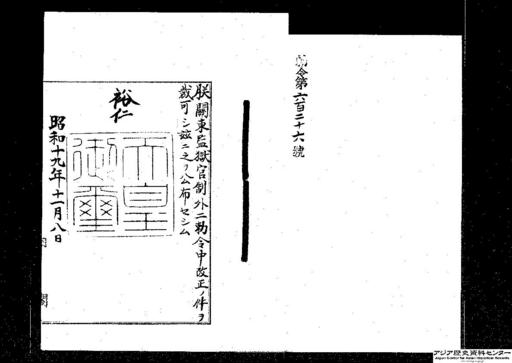 勅令第六百二十六號
朕關東監獄官制外二勅令中改正ノ件ヲ
裁可シ玆ニ之ヲ公布セシム
裕仁
天皇
御璽
昭和十九年十一月八日
内閣
アジア歴史資料センター
Japan Center for Asian Historical Records